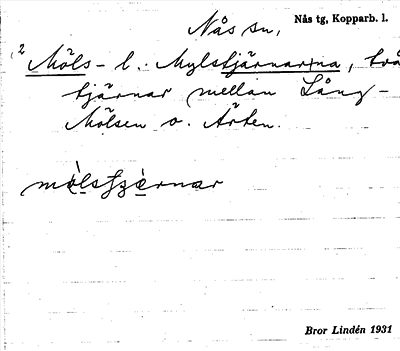 Nås sn,
Nås tg, Kopparb. l.
2 Möls- l. Mylstjärnar(na, två
tjärnar mellan Lång-
Mölsen o. Ärten.
Bror Lindén 1931